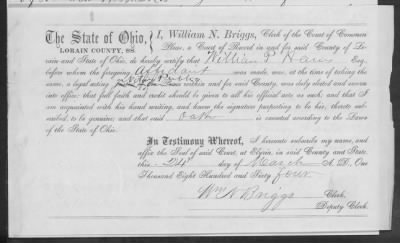 The State of Ohio,
LORAIN COUNTY, SS.
I, William N. Briggs, Clerk of the Court of Common
Pleas, a Court of Record in and for said County of Lo-
rain and State of Ohio, do hereby certify that William P. Esq.
before whom the foregoing Affidavit was made, was, at the time of taking the
same, a legal acting within and for said County, was duly elected and sworn
into office: that full faith and credit should be given to all his official acts as such; and that I
am acquainted with his hand writing, and know the signature purporting to be his, thereto sub-
scribed, to be genuine; and that said Oath is executed according to the Laws
of the State of Ohio.
In Testimony Whereof, I hereunto subscribe my name, and
affix the Seal of said Court, at Elyria, in said County and State,
this 24" day of March A. D., One
Thousand Eight Hundred and Sixty four.
Wm N Briggs Clerk.
Deputy Clerk.